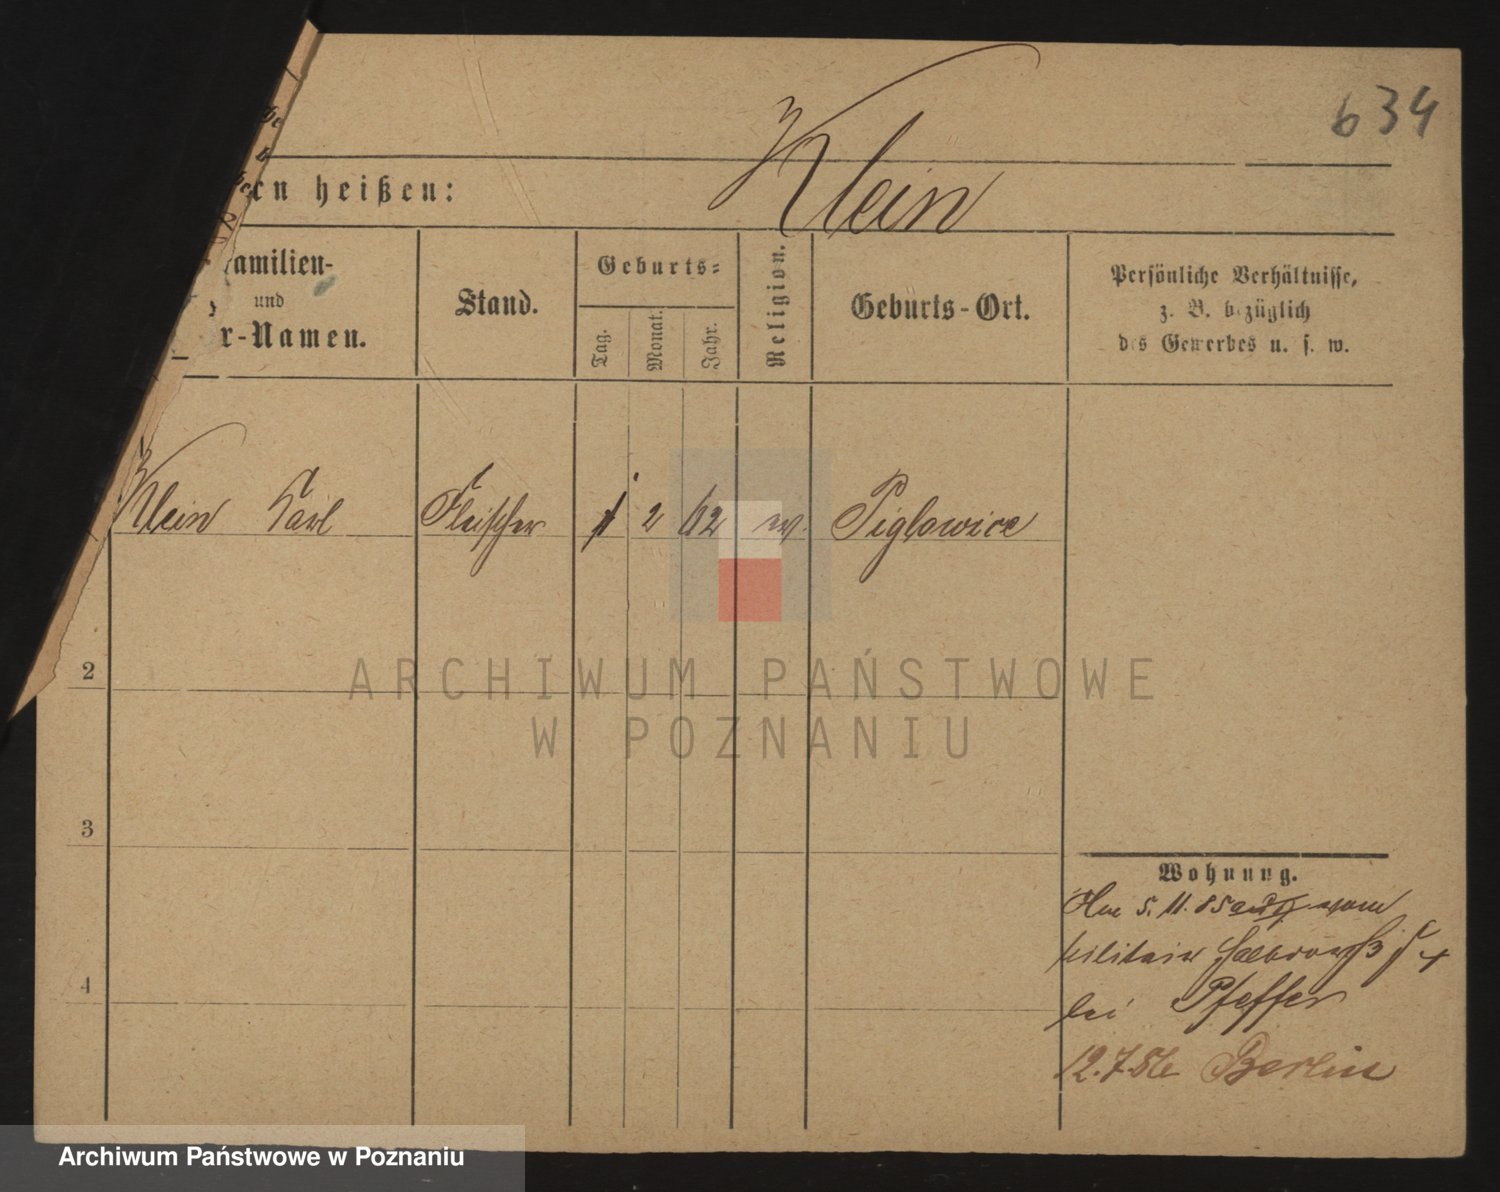 634
en heißen: Klein
Familien-
und
r-Namen.
Stand.
Geburts-
Tag.
Monat.
Jahr.
Religion.
Geburts-Ort.
Persönliche Verhältnisse,
z. B. bezüglich
des Gewerbes u. s. w.
Klein Karl Fleischer 1 2 62 Piglowice
2
3
4
Wohnung.
5. 11. 85 vom
Militair
bei Pfeffer
12.7.86 Berlin
ARCHIWUM PAŃSTWOWE
W POZNANIU
Archiwum Państwowe w Poznaniu